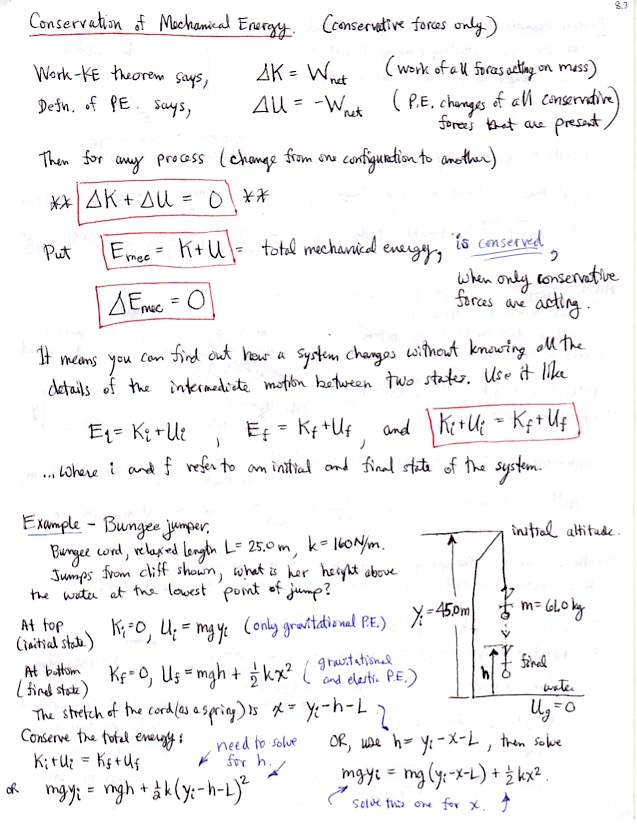 8.3
Conservation of Mechanical Energy. (conservative forces only)
Work-KE theorem says, ΔK = Wnet (work of all forces acting on mass)
Defn. of PE. says, ΔU = -Wnet (P.E. changes of all conservative
forces that are present)
Then for any process (change from one configuration to another)
** ΔK + ΔU = 0 **
Put Emec = K+U = total mechanical energy, is conserved,
when only conservative
forces are acting.
ΔEmec = 0
It means you can find out how a system changes without knowing all the
details of the intermediate motion between two states. Use it like
Ei = Ki+Ui , Ef = Kf+Uf, and Ki+Ui = Kf+Uf
...where i and f refer to an initial and final state of the system.
Example - Bungee jumper.
Bungee cord, relaxed length L = 25.0 m, k = 160 N/m.
Jumps from cliff shown, what is her height above
the water at the lowest point of jump?
At top
(initial state)
Ki=0, Ui = mgyi (only gravitational P.E.)
At bottom
(final state)
Kf=0, Uf = mgh + ½kx² (gravitational
and elastic P.E.)
The stretch of the cord (as a spring) is x = yi-h-L
Conserve the total energy:
Ki+Ui = Kf+Uf
need to solve
for h.
or mgyi = mgh + ½k(yi-h-L)²
OR, use h = yi-x-L, then solve
mgyi = mg(yi-x-L) + ½kx².
solve this one for x.
initial altitude.
yi = 45.0m
m = 61.0 kg
h
final
water
Ug = 0